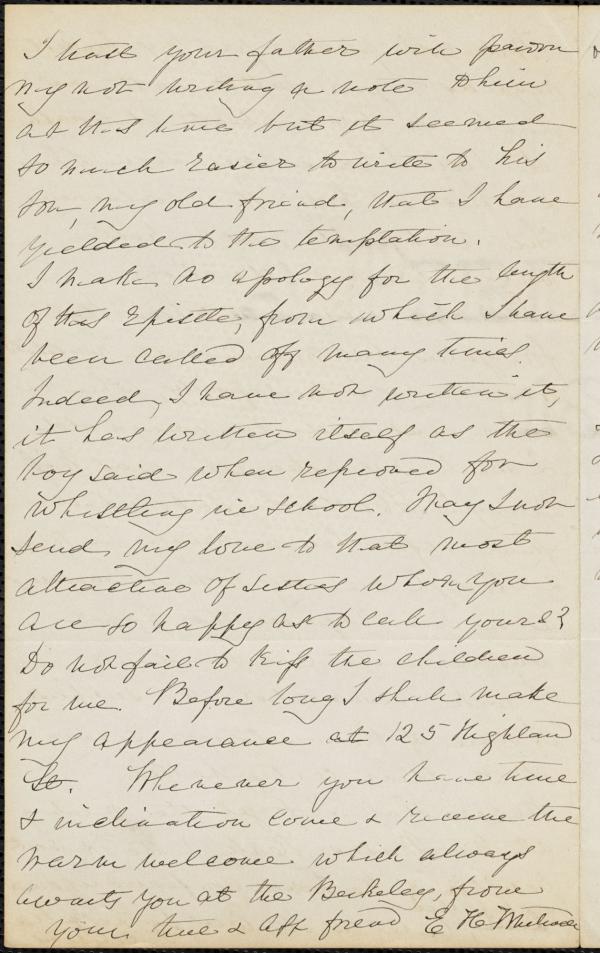 I trust your father will pardon
my not writing a note to him
at this time but it seemed
so much easier to write to his
son, my old friend, that I have
yielded to the temptation.
I make no apology for the length
of this Epistle, from which I have
been called off many times.
Indeed, I have not written it,
it has written itself as the
boy said when reproved for
whistling in school. May I not
send my love to that most
attractive of sisters whom you
are so happy as to call yours?
Do not fail to kiss the children
for me. Before long I shall make
my appearance at 125 Highland
St. Whenever you have time
& inclination come & receive the
warm welcome which always
awaits you at the Berkeley, from
your true & aff friend E H